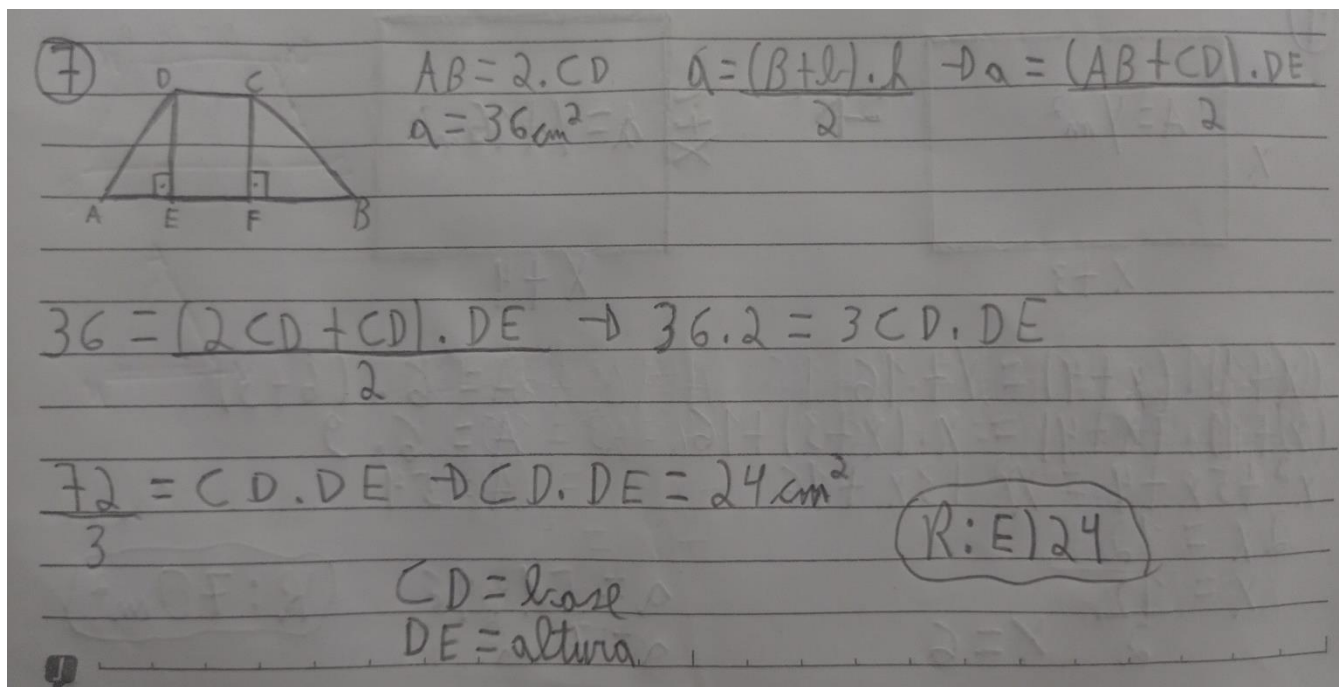 7
D C
A E F B
AB = 2.CD
a = 36cm²
a = (B+b).h / 2 → a = (AB+CD).DE / 2
36 = (2CD+CD).DE / 2 → 36.2 = 3CD.DE
72 / 3 = CD.DE → CD.DE = 24cm²
R: E) 24
CD = base
DE = altura
J